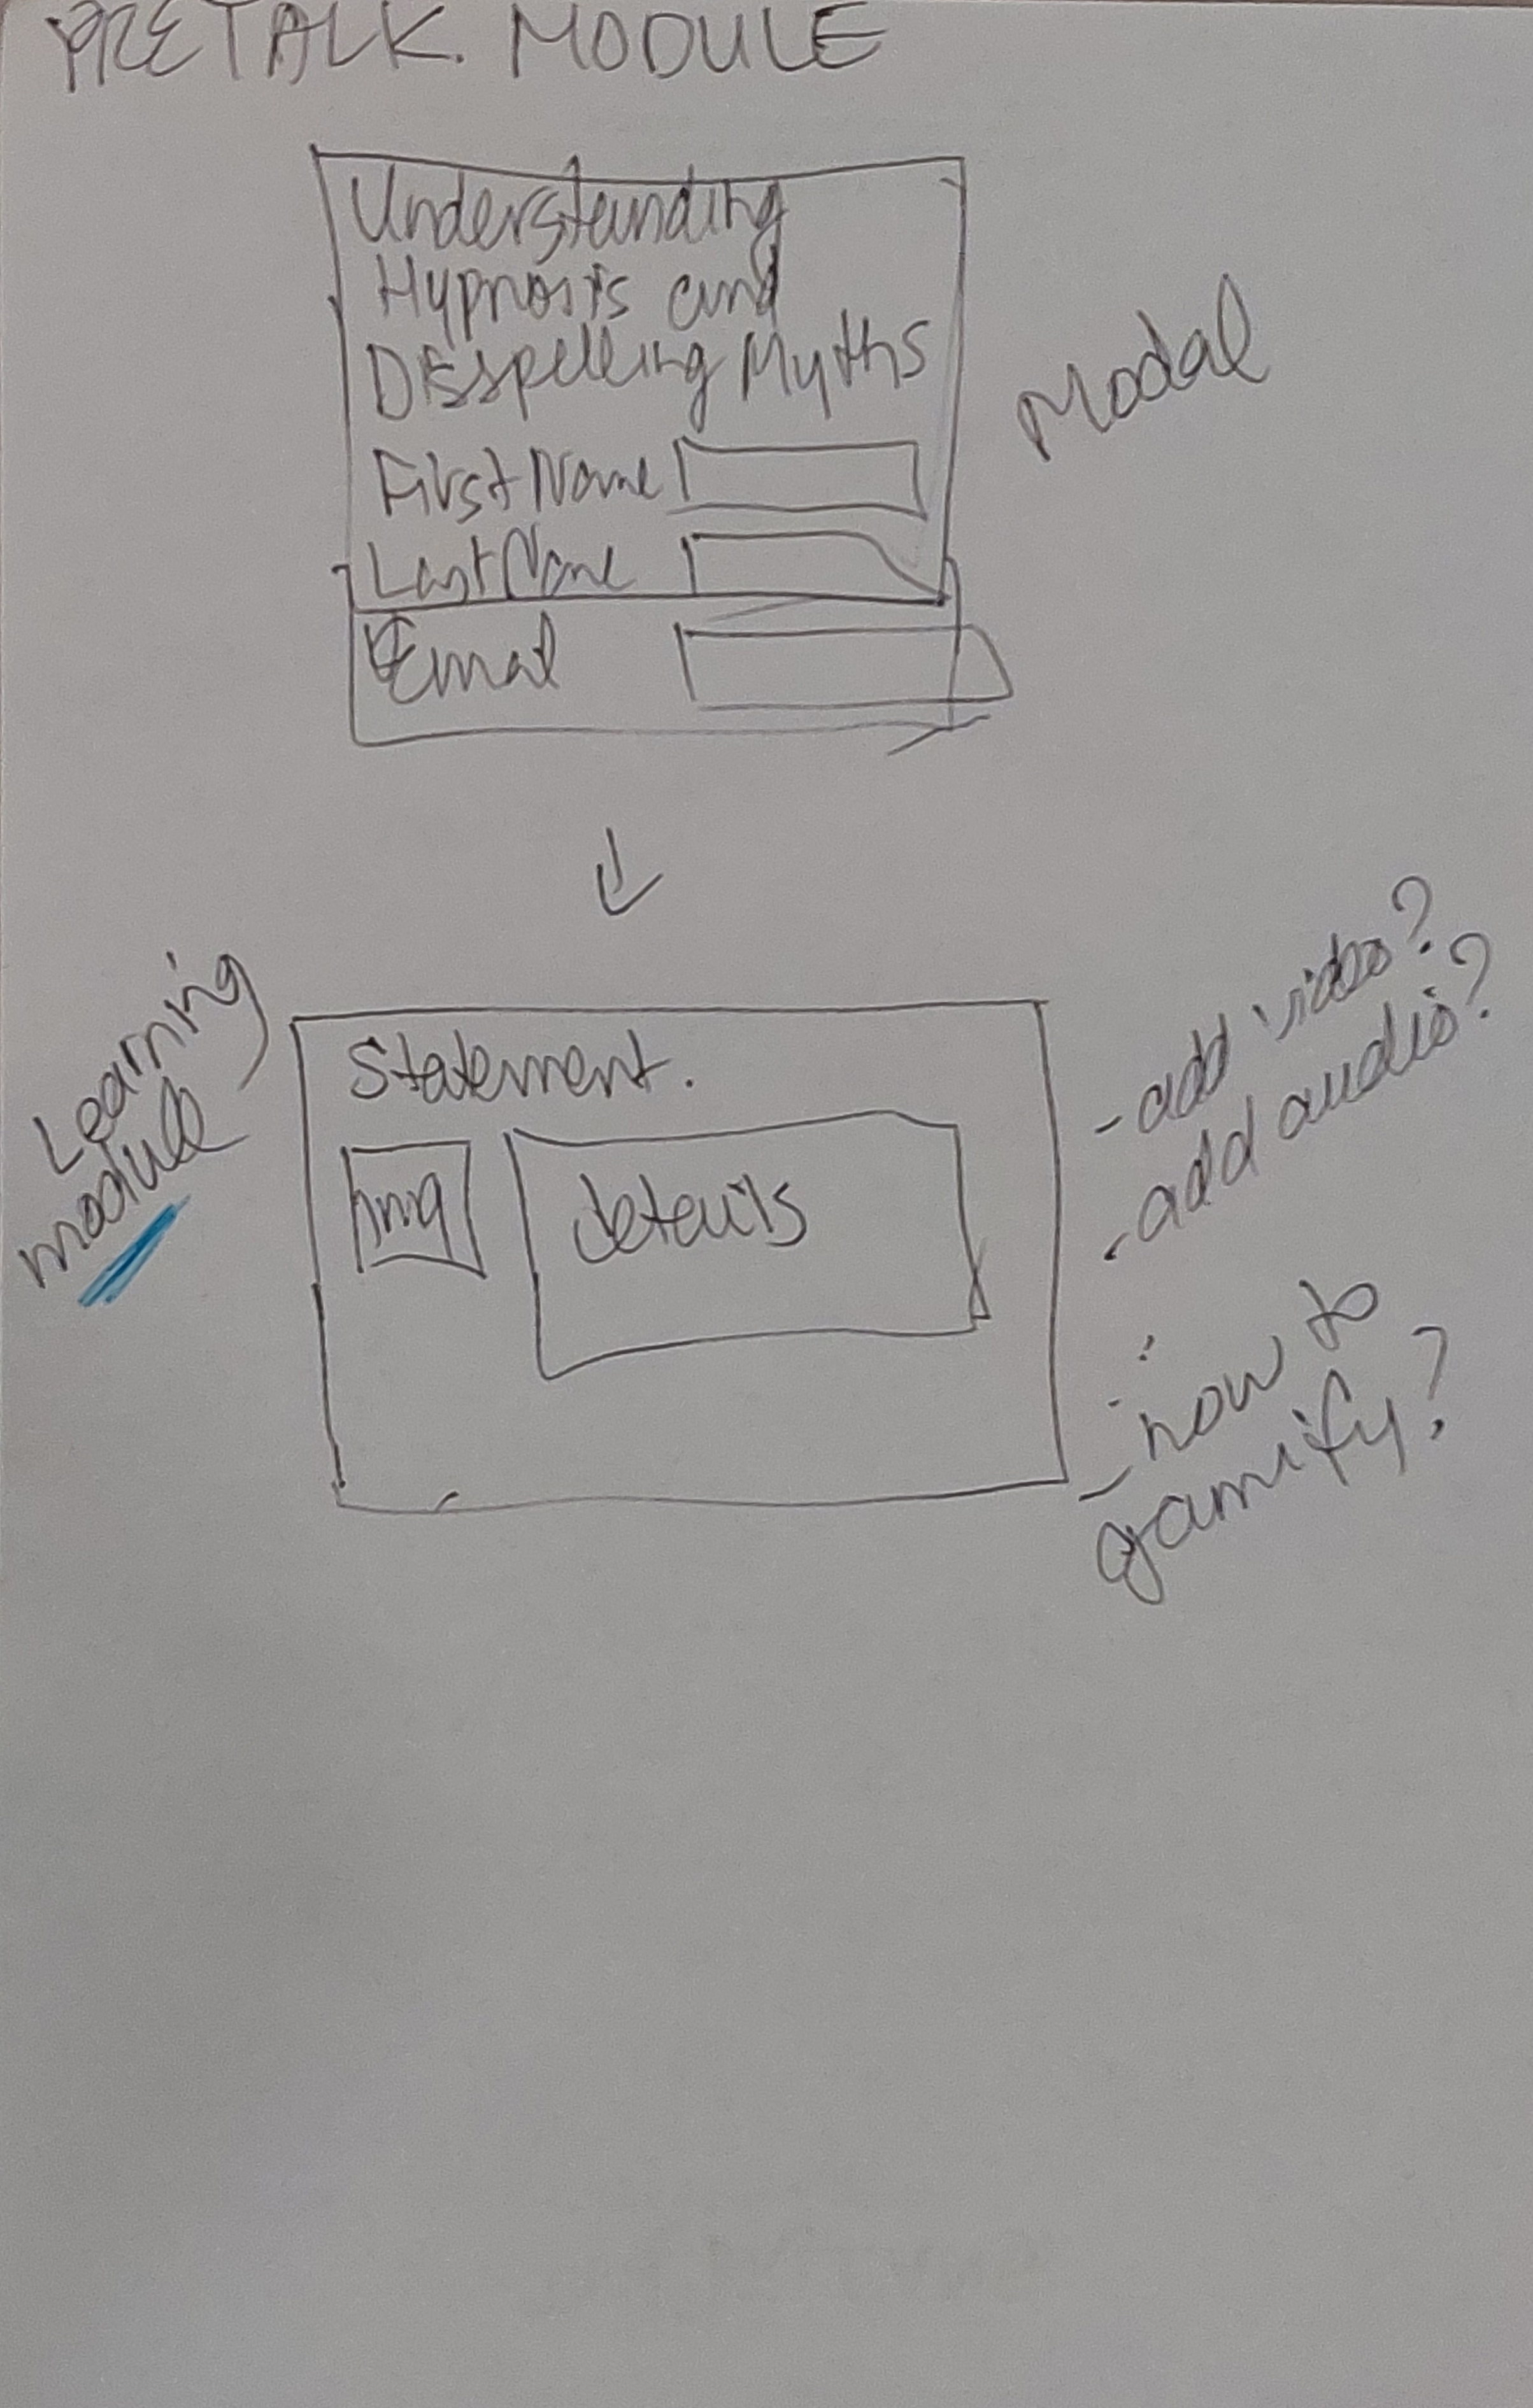 PRETALK. MODULE
Understanding
Hypnosis and
Disspelling Myths
First Name
Last Name
Email
Modal
Learning
module
Statement.
img
details
- add video?
- add audio?
- how to
gamify?